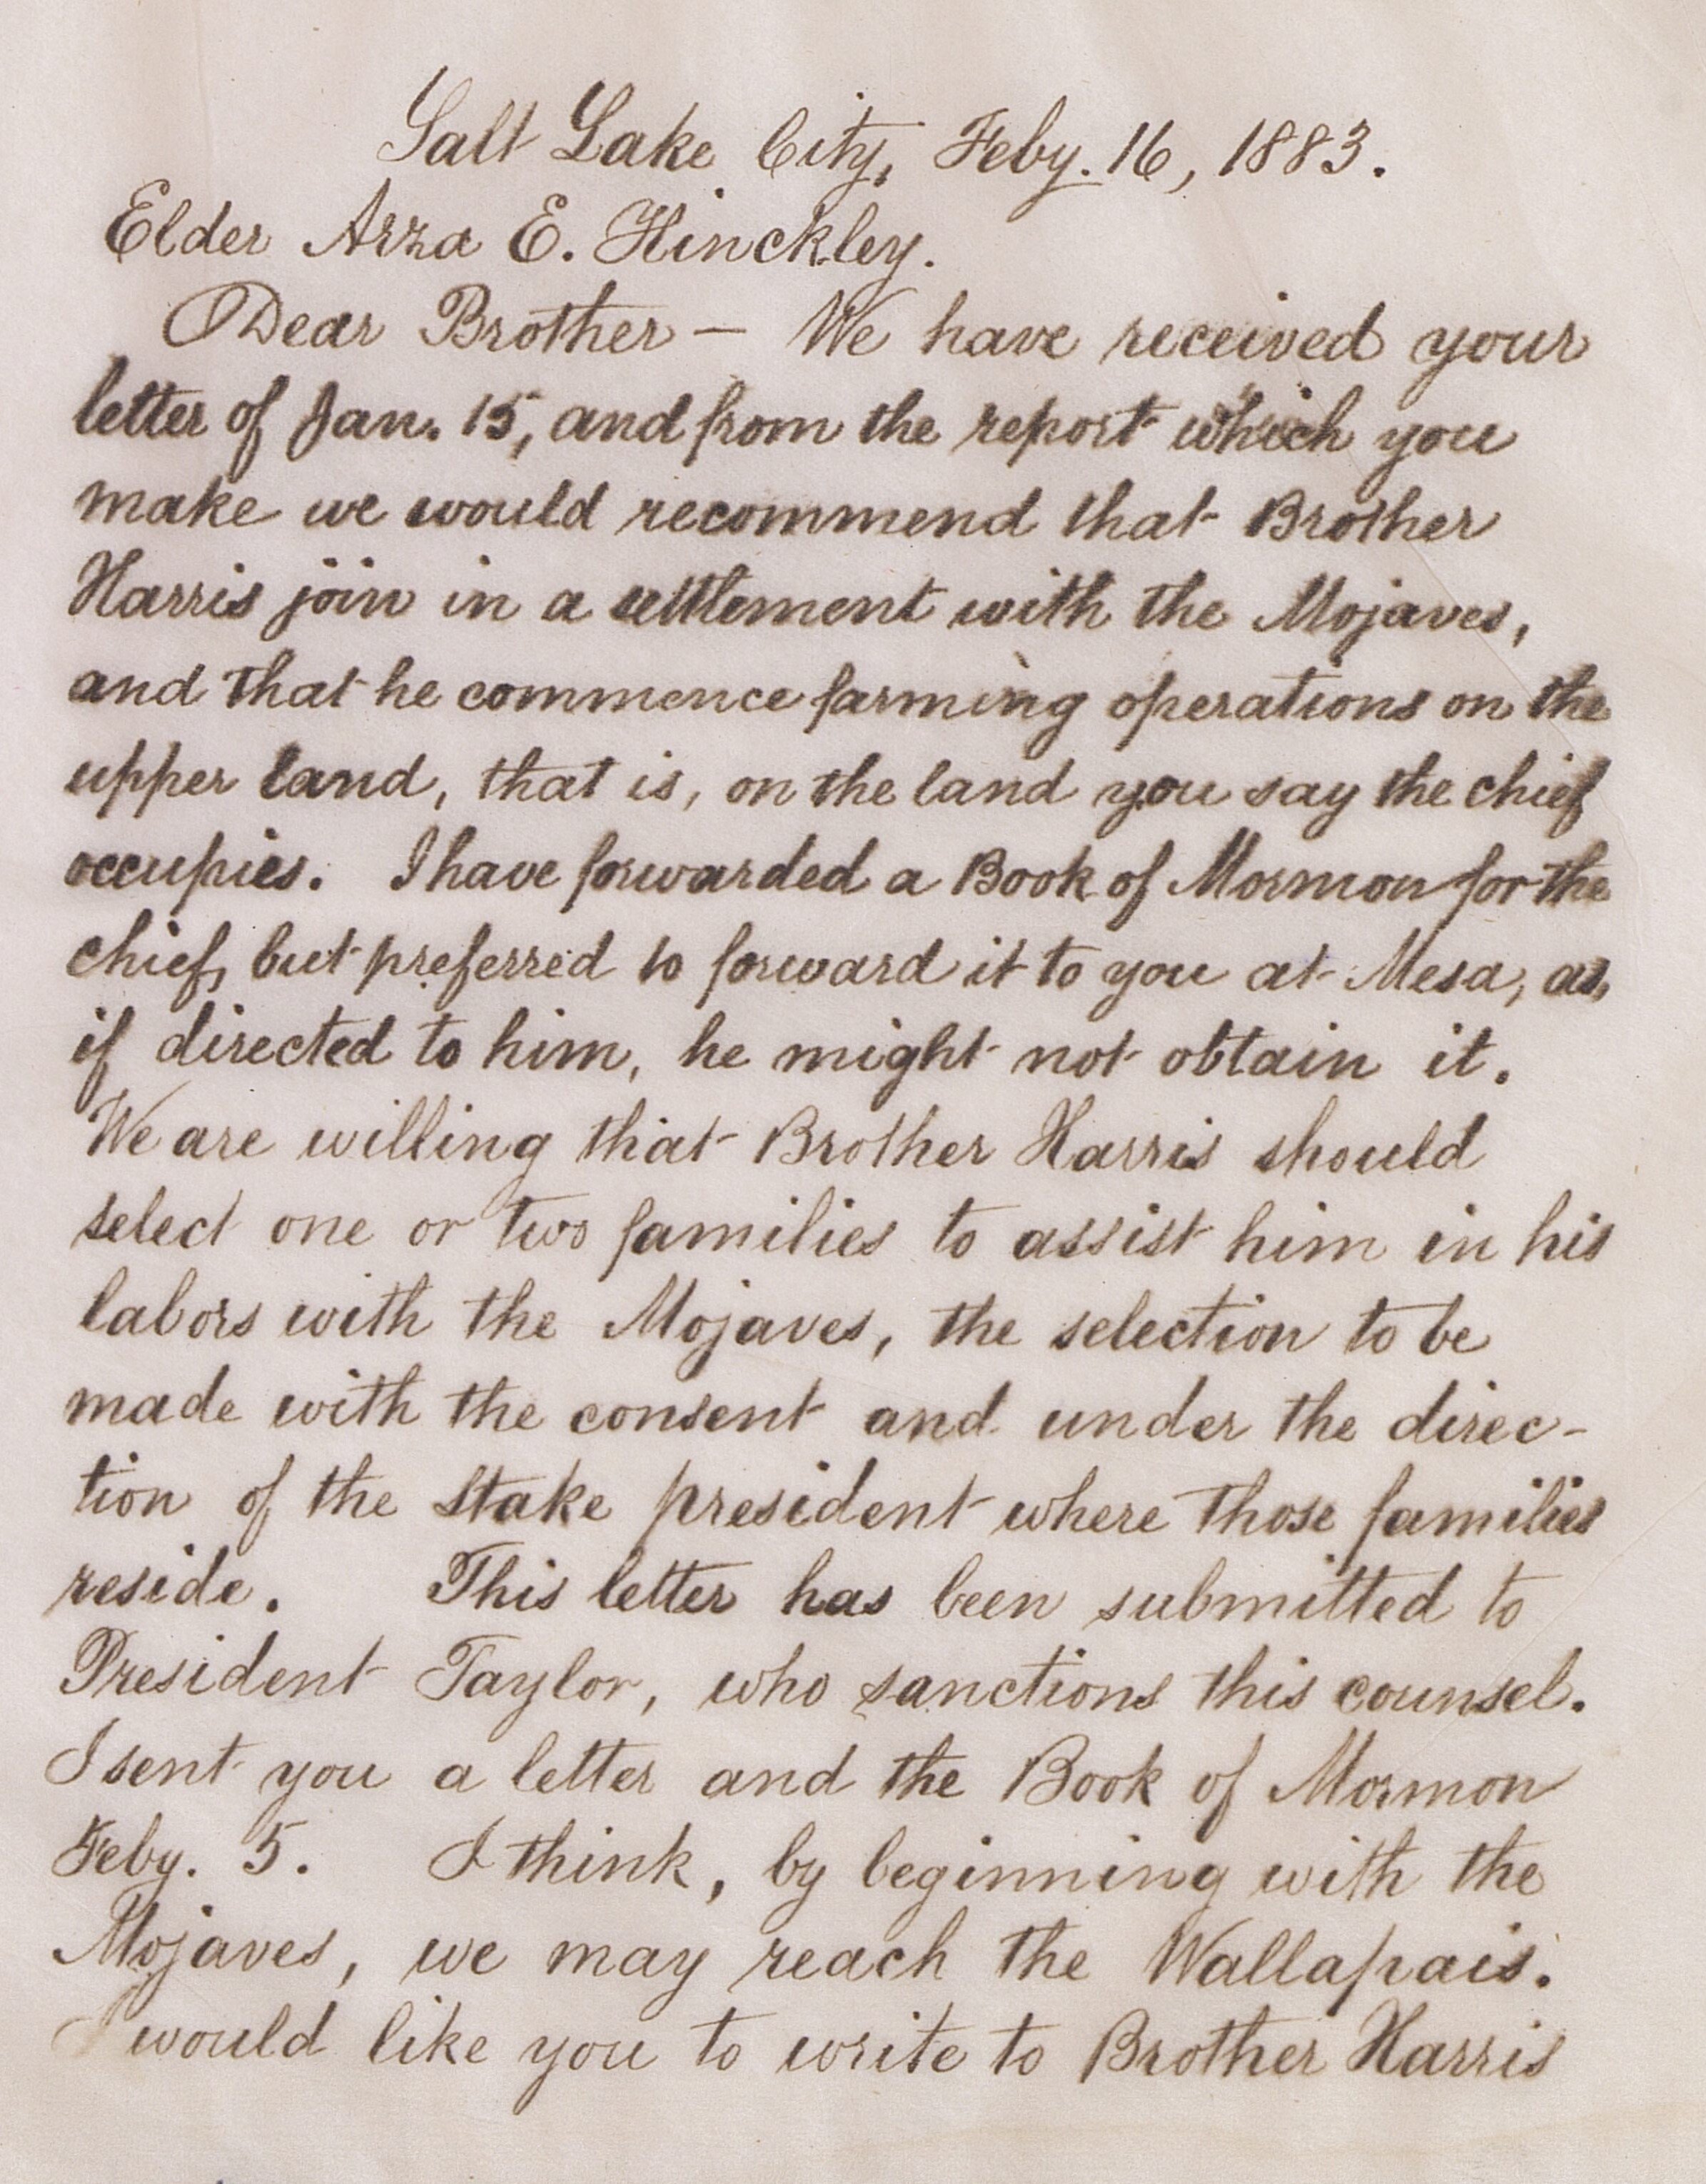 Salt Lake City, Feby. 16, 1883.
Elder Arza E. Hinckley.
Dear Brother — We have received your
letter of Jan. 15, and from the report which you
make we would recommend that Brother
Harris join in a settlement with the Mojaves,
and that he commence farming operations on the
upper land, that is, on the land you say the chief
occupies. I have forwarded a Book of Mormon for the
chief, but preferred to forward it to you at Mesa, as,
if directed to him, he might not obtain it.
We are willing that Brother Harris should
select one or two families to assist him in his
labors with the Mojaves, the selection to be
made with the consent and under the direc-
tion of the Stake president where those families
reside. This letter has been submitted to
President Taylor, who sanctions this counsel.
I sent you a letter and the Book of Mormon
Feby. 5. I think, by beginning with the
Mojaves, we may reach the Wallapais.
I would like you to write to Brother Harris